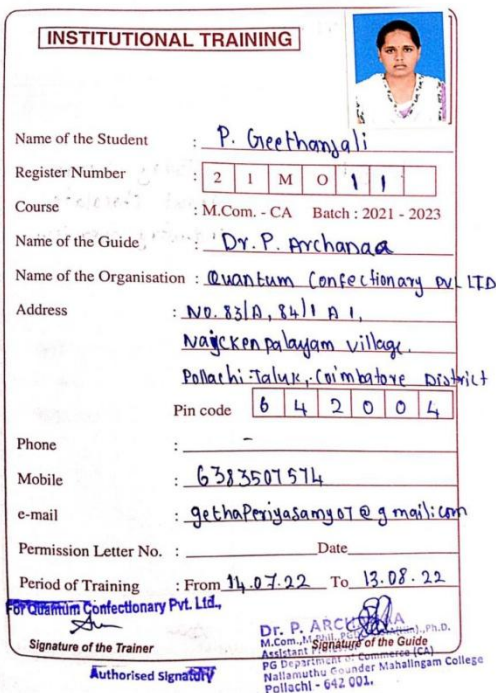 INSTITUTIONAL TRAINING
Name of the Student : P. Geethanjali
Register Number : 2 1 M O 1 1
Course : M.Com. - CA Batch : 2021 - 2023
Name of the Guide : Dr. P. Archanaa
Name of the Organisation : Quantum Confectionary Pvt LTD
Address : No. 83/A, 84/1 A 1,
Naickenpalayam village.
Pollachi-Taluk, Coimbatore District
Pin code 6 4 2 0 0 4
Phone : -
Mobile : 6383507574
e-mail : gethaperiyasamy07@gmail.com
Permission Letter No. : Date
Period of Training : From 14.07.22 To 13.08.22
For Quantum Confectionary Pvt. Ltd.,
Signature of the Trainer
Authorised Signatory
Dr. P. ARCHANAA
M.Com., M.Phil., Ph.D.
Assistant
Signature of the Guide
PG Department of Commerce (CA)
Nallamuthu Gounder Mahalingam College
Pollachi - 642 001.